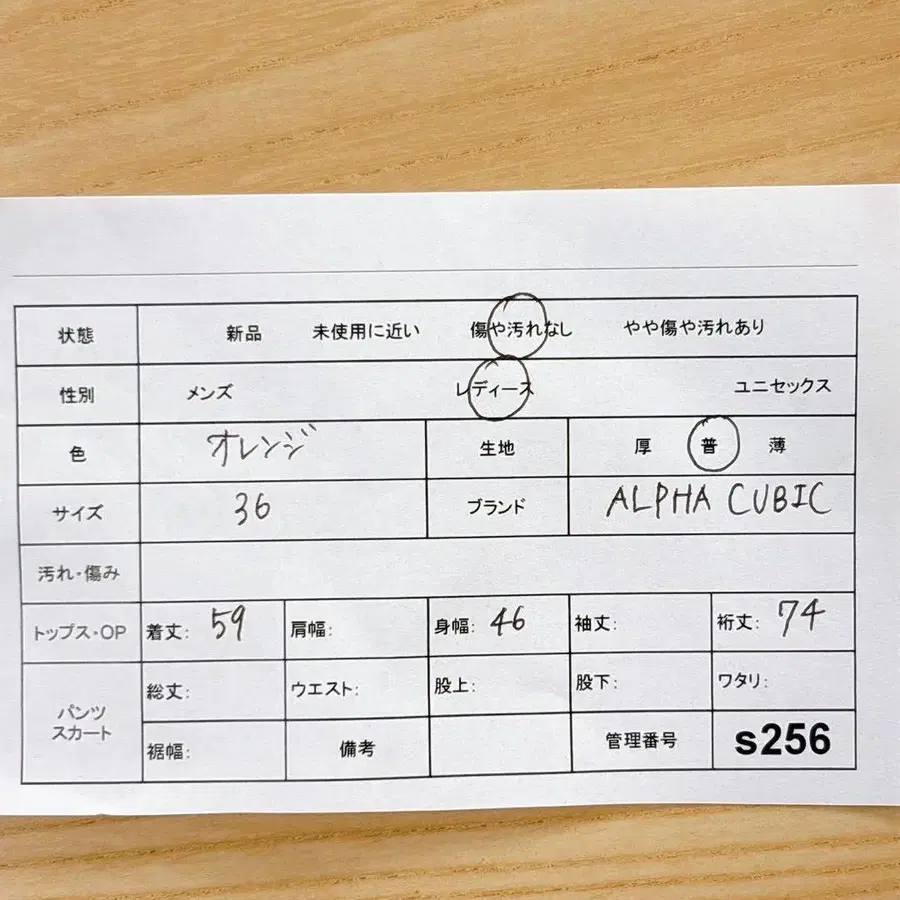 状態 新品 未使用に近い 傷や汚れなし やや傷や汚れあり
性別 メンズ レディース ユニセックス
色 オレンジ 生地 厚 普 薄
サイズ 36 ブランド ALPHA CUBIC
汚れ・傷み
トップス・OP 着丈: 59 肩幅: 身幅: 46 袖丈: 裄丈: 74
パンツ
スカート
総丈: ウエスト: 股上: 股下: ワタリ:
裾幅: 備考 管理番号 s256